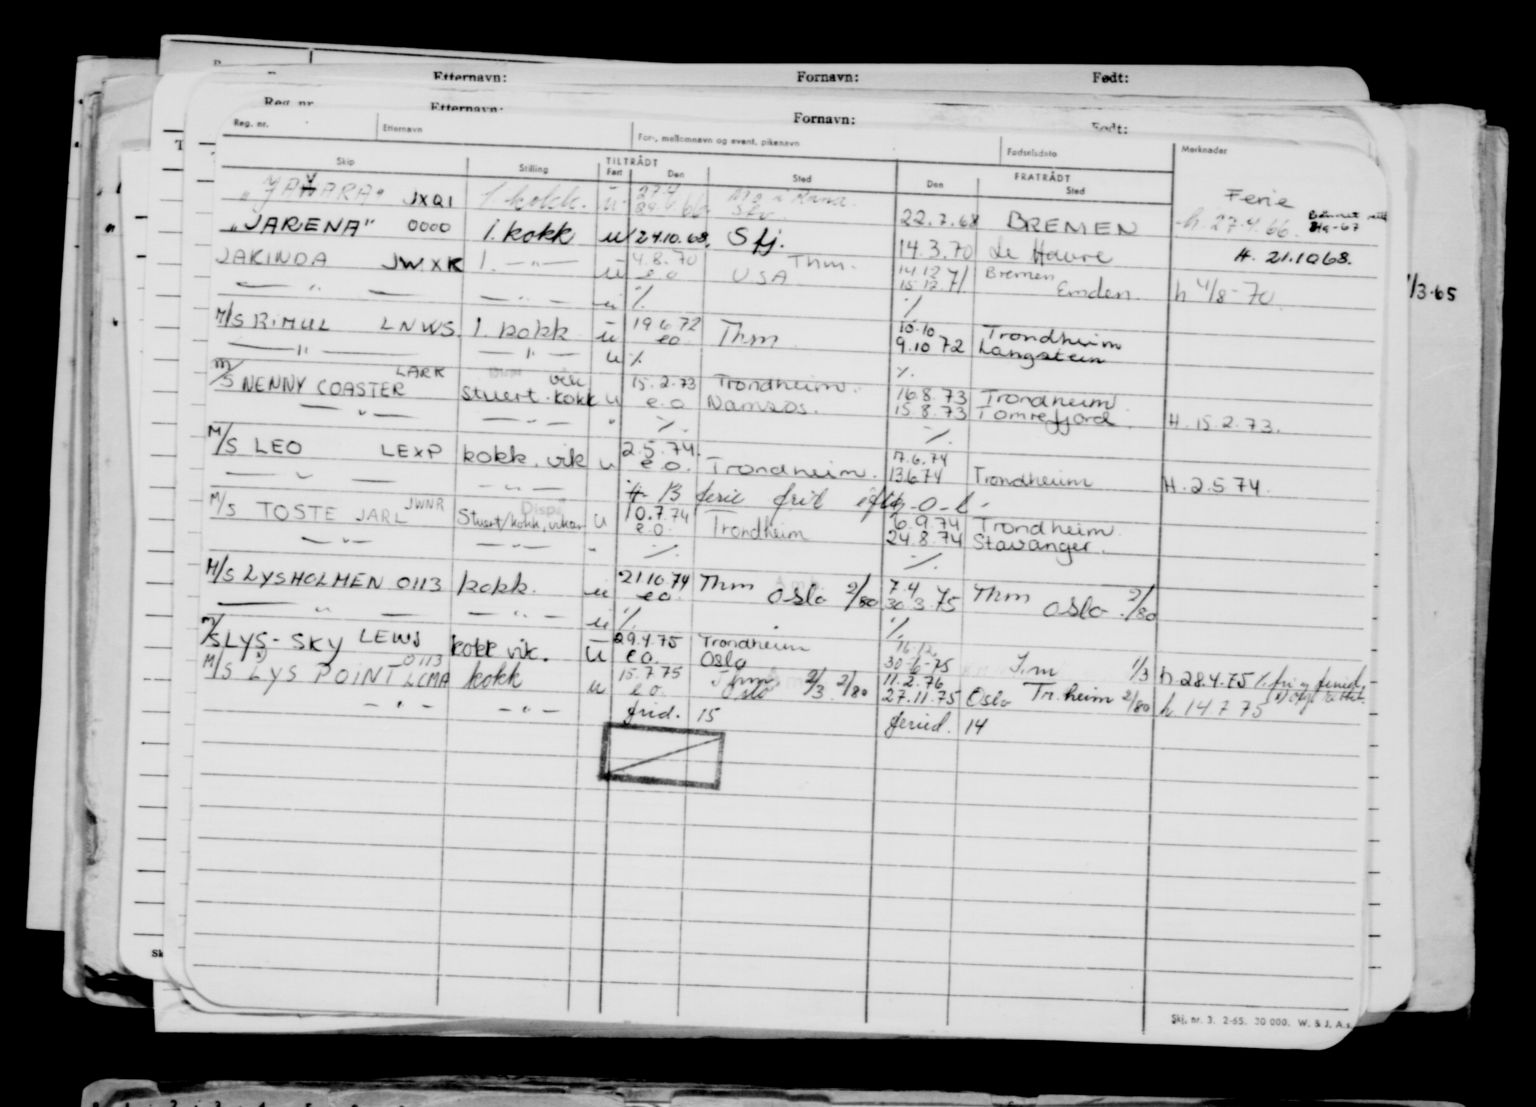 Etternavn: Fornavn: Født:
Reg. nr. Etternavn: Fornavn: Født:
Reg. nr. Etternavn For-, mellomnavn og event. pikenavn Fødselsdato Merknader
Skip Stilling TILTRÅDT FRATRÅDT
Fart Den Sted Den Sted
Ferie
"JAHARA" JXQI 1. kokk. u 27.4 66 Mo i Rana 22.7.68 BREMEN h. 27.4.66
"JARENA" 0000 1. kokk u 24.10.68. Sfj. 14.3.70 Le Havre H. 21.10 68.
JAKINDA JWXK 1. —"— u 4.8.70 Thm.
e.o USA 14.12.71 Bremen
15.12.71 Emden h 4/8-70
—"— —"— u % %
M/S RIMUL LNWS. 1. kokk u 19 6 72 Thm 10.10 Trondheim
e.o 9.10 72 Langstein
—"— —"— u % %
M/S NENNY COASTER LARK Stuert.kokk vik u 15.2.73 Trondheim. 16.8.73 Trondheim
e.o Namsos. 15.8.73 Tomrefjord H. 15.2.73.
—"— —"— " % %
M/S LEO LEXP kokk. vik u 2.5.74. 17.6.74
e.o. Trondheim. 13.6.74 Trondheim H. 2.5 74.
—"— —"— ferie
M/S TOSTE JARL JWNR Stuert/kokk, vikar u 10.7.74 6.9.74 Trondheim
e.o. Trondheim 24.8.74 Stavanger.
—"— —"— " % %
M/S LYSHOLMEN 0113 kokk. u 21.10.74 Thm 7.4 Thm
e.o. Oslo 2/80 30.3.75 Oslo 2/80
—"— —"— u % %
M/S LYS-SKY LEWJ kokk vik. u 29.4.75 Trondheim
e.o. Oslo 30-6-75 1/3 h. 28.4.75
M/S LYS POINT 0113 LCMA kokk u 15.7.75 2/3 2/80 11.2.76
e.o. Oslo 27.11.75 Oslo Tr.heim 2/80 h 14.7 75
—"— —"— frid. 15 feried. 14
1/3-65
Skj. nr. 3. 2-65. 30 000. W. & J. A.s.